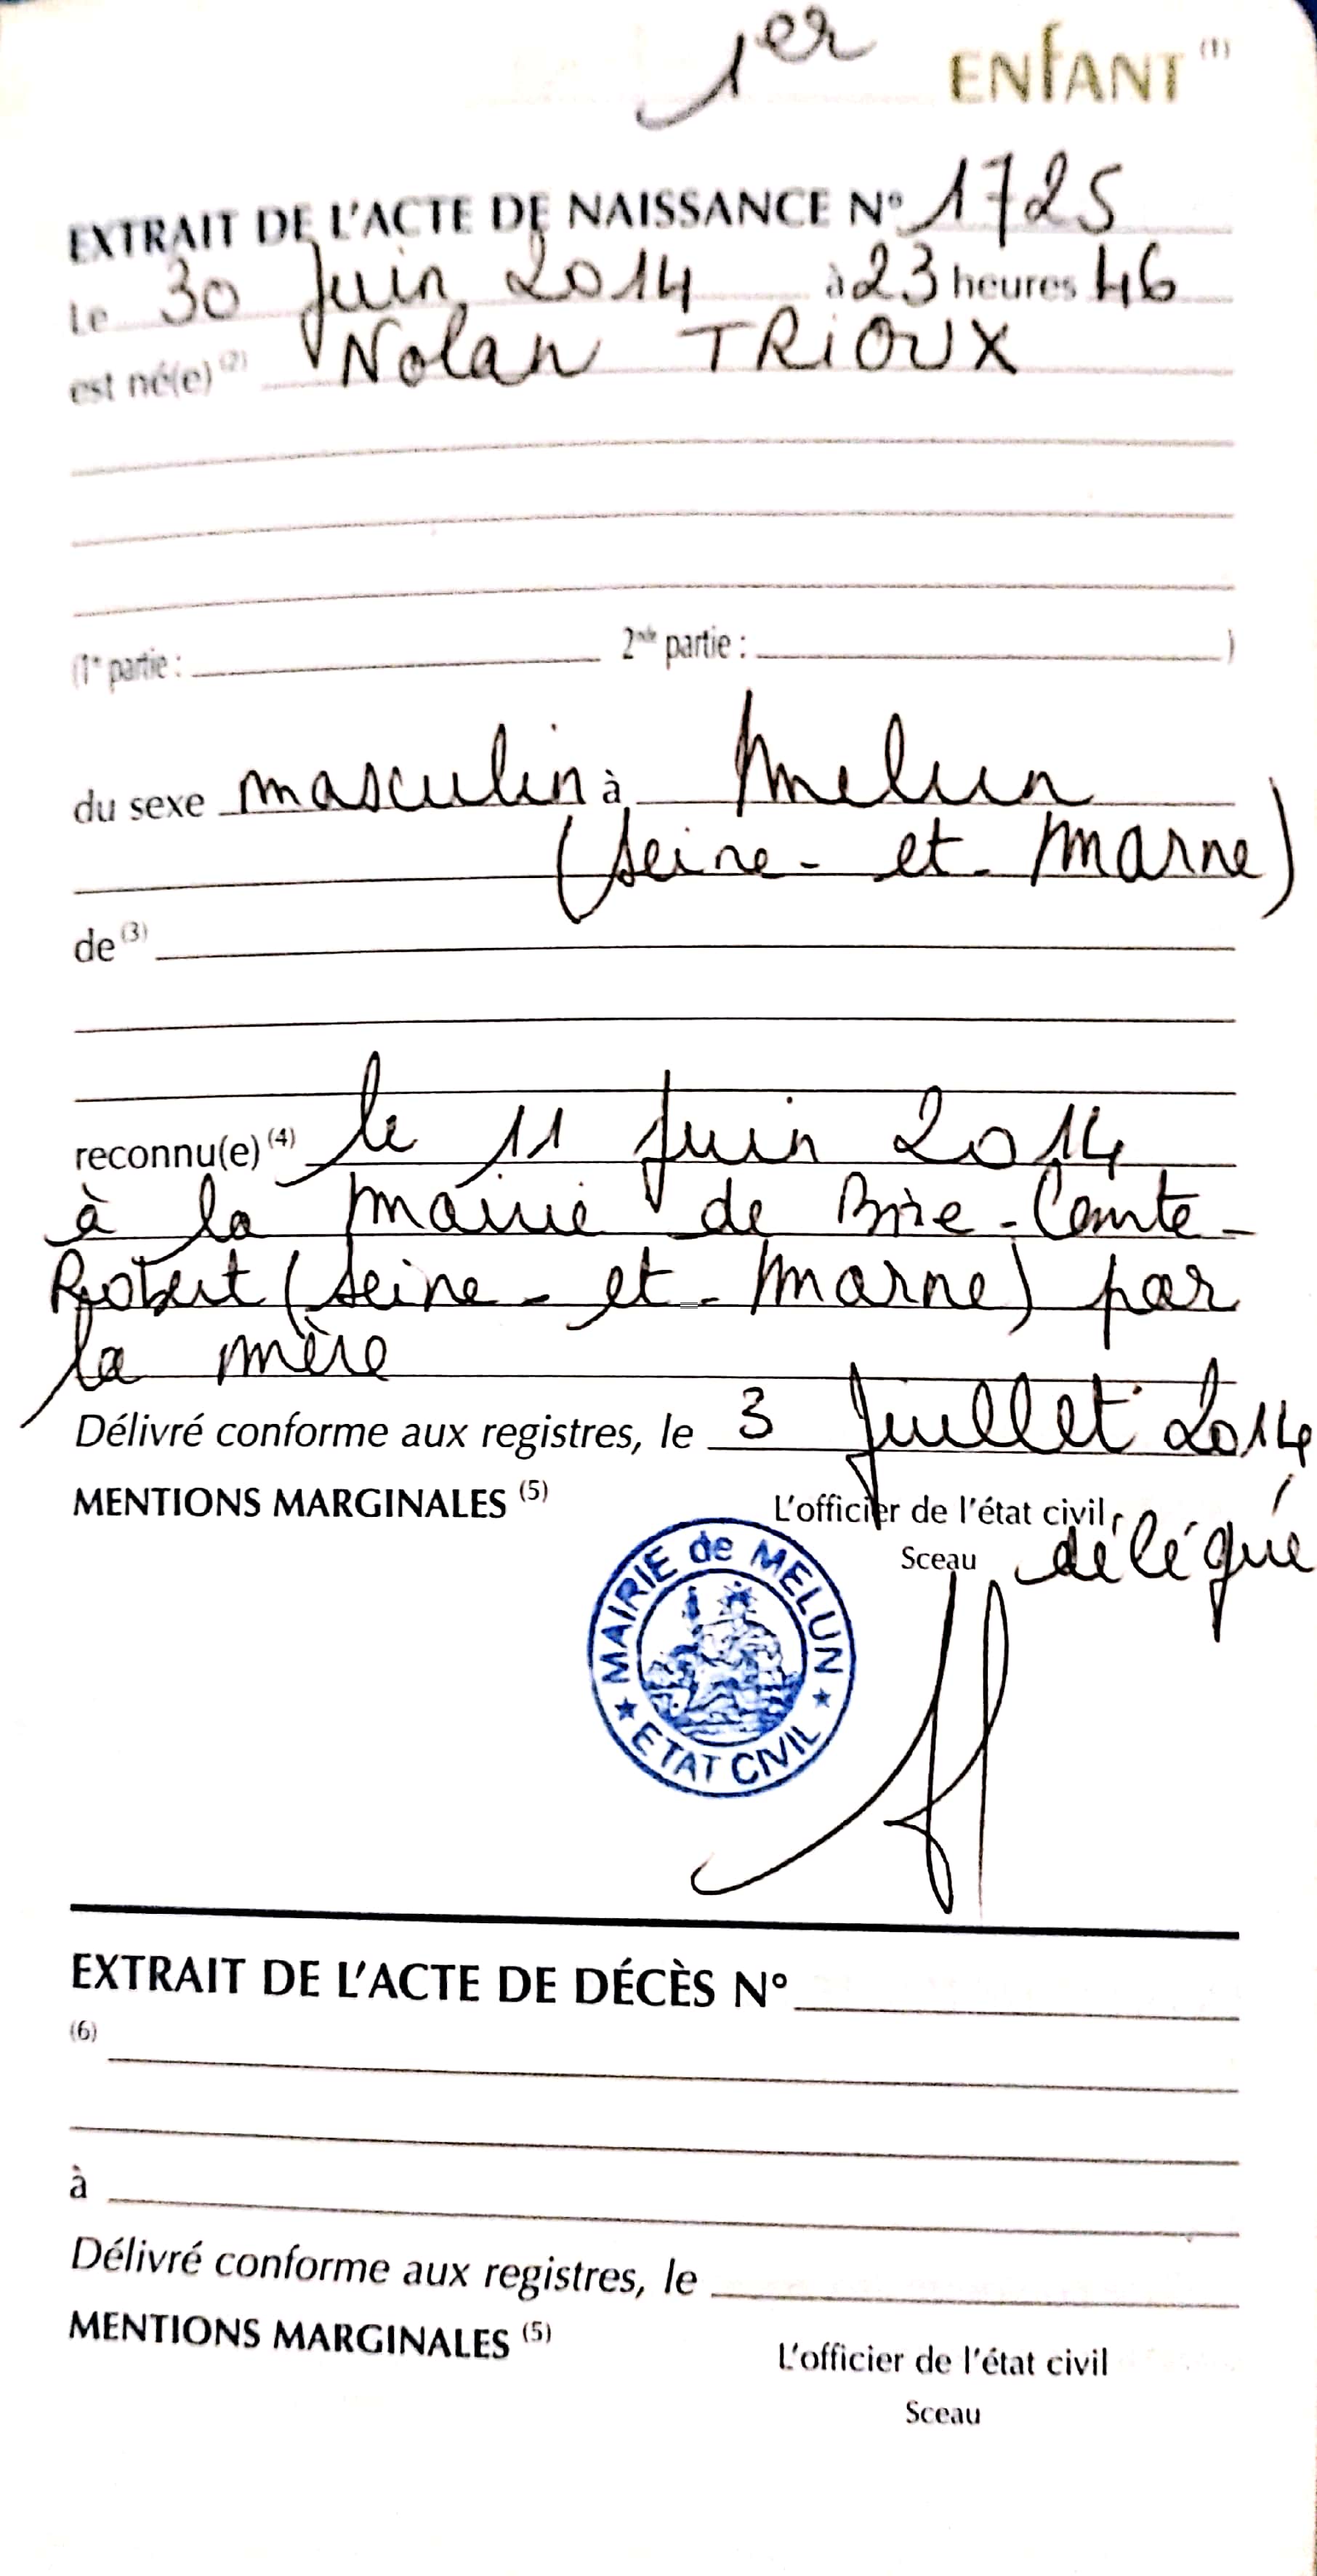 1er ENFANT (1)
EXTRAIT DE L'ACTE DE NAISSANCE N° 1725
Le 30 Juin 2014 à 23 heures 46
est né(e) (2) Nolan TRIOUX
(1re partie : 2nde partie : )
du sexe masculin à Melun
(Seine-et-Marne)
de (3)
reconnu(e) (4) le 11 Juin 2014
à la mairie de Brie-Comte-
Robert (Seine-et-Marne) par
la mère
Délivré conforme aux registres, le 3 Juillet 2014
MENTIONS MARGINALES (5)
L'officier de l'état civil,
Sceau délégué
MAIRIE de MELUN
★ ETAT CIVIL ★
EXTRAIT DE L'ACTE DE DÉCÈS N°
(6)
à
Délivré conforme aux registres, le
MENTIONS MARGINALES (5)
L'officier de l'état civil
Sceau